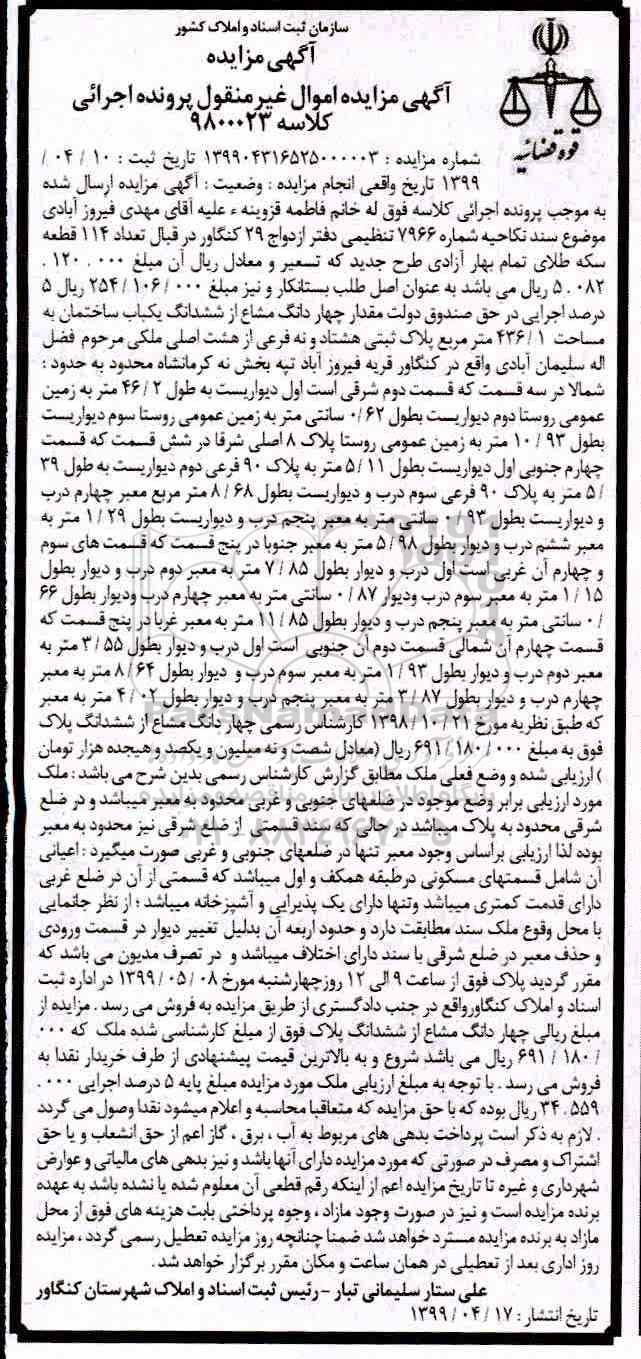 سازمان ثبت اسناد و املاک کشور
آگهی مزایده
آگهی مزایده اموال غیر منقول پرونده اجرائی
کلاسه ۹۸۰۰۰۲۳
قوه قضائیه
شماره مزایده : ۱۳۹۹۰۴۳۱۶۵۲۵۰۰۰۰۰۳ تاریخ ثبت : ۱۰ / ۰۴ /
۱۳۹۹ تاریخ واقعی انجام مزایده : وضعیت : آگهی مزایده ارسال شده
به موجب پرونده اجرائی کلاسه فوق له خانم فاطمه قزوینه ء علیه آقای مهدی فیروز آبادی
موضوع سند نکاحیه شماره ۷۹۶۶ تنظیمی دفتر ازدواج ۲۹ کنگاور در قبال تعداد ۱۱۴ قطعه
سکه طلای تمام بهار آزادی طرح جدید که تسعیر و معادل ریال آن مبلغ ۰۰۰ . ۱۲۰ .
۵ . ۰۸۲ ریال می باشد به عنوان اصل طلب بستانکار و نیز مبلغ ۰۰۰ / ۱۰۶ / ۲۵۴ ریال ۵
درصد اجرایی در حق صندوق دولت مقدار چهار دانگ مشاع از ششدانگ یکباب ساختمان به
مساحت ۱ / ۴۳۶ متر مربع پلاک ثبتی هشتاد و نه فرعی از هشت اصلی ملکی مرحوم فضل
اله سلیمان آبادی واقع در کنگاور قریه فیروز آباد تپه بخش نه کرمانشاه محدود به حدود :
شمالا در سه قسمت که قسمت دوم شرقی است اول دیواریست به طول ۲ / ۴۶ متر به زمین
عمومی روستا دوم دیواریست بطول ۶۲ / ۰ سانتی متر به زمین عمومی روستا سوم دیواریست
بطول ۹۳ / ۱۰ متر به زمین عمومی روستا پلاک ۸ اصلی شرقا در شش قسمت که قسمت
چهارم جنوبی اول دیواریست بطول ۱۱ / ۵ متر به پلاک ۹۰ فرعی دوم دیواریست به طول ۳۹
/ ۵ متر به پلاک ۹۰ فرعی سوم درب و دیواریست بطول ۶۸ / ۸ متر مربع معبر چهارم درب
و دیواریست بطول ۹۳ / ۰ سانتی متر به معبر پنجم درب و دیواریست بطول ۲۹ / ۱ متر به
معبر ششم درب و دیوار بطول ۹۸ / ۵ متر به معبر جنوبا در پنج قسمت که قسمت های سوم
و چهارم آن غربی است اول درب و دیوار بطول ۸۵ / ۷ متر به معبر دوم درب و دیوار بطول
۱۵ / ۱ متر به معبر سوم درب ودیوار ۸۷ / ۰ سانتی متر به معبر چهارم درب ودیوار بطول ۶۶
/ ۰ سانتی متر به معبر پنجم درب و دیوار بطول ۸۵ / ۱۱ متر به معبر غربا در پنج قسمت که
قسمت چهارم آن شمالی قسمت دوم آن جنوبی است اول درب و دیوار بطول ۵۵ / ۳ متر به
معبر دوم درب و دیوار بطول ۹۳ / ۱ متر به معبر سوم درب و دیوار بطول ۶۴ / ۸ متر به معبر
چهارم درب و دیوار بطول ۸۷ / ۳ متر به معبر پنجم درب و دیوار بطول ۰۲ / ۴ متر به معبر
که طبق نظریه مورخ ۲۱ / ۱۰ / ۱۳۹۸ کارشناس رسمی چهار دانگ مشاع از ششدانگ پلاک
فوق به مبلغ ۰۰۰ / ۱۸۰ / ۶۹۱ ریال (معادل شصت و نه میلیون و یکصد و هیجده هزار تومان
) ارزیابی شده و وضع فعلی ملک مطابق گزارش کارشناس رسمی بدین شرح می باشد : ملک
مورد ارزیابی برابر وضع موجود در ضلعهای جنوبی و غربی محدود به معبر میباشد و در ضلع
شرقی محدود به پلاک میباشد در حالی که سند قسمتی از ضلع شرقی نیز محدود به معبر
بوده لذا ارزیابی براساس وجود معبر تنها در ضلعهای جنوبی و غربی صورت میگیرد : اعیانی
آن شامل قسمتهای مسکونی درطبقه همکف و اول میباشد که قسمتی از آن در ضلع غربی
دارای قدمت کمتری میباشد وتنها دارای یک پذیرایی و آشپزخانه میباشد ؛ از نظر جانمایی
با محل وقوع ملک سند مطابقت دارد و حدود اربعه آن بدلیل تغییر دیوار در قسمت ورودی
و حذف معبر در ضلع شرقی با سند دارای اختلاف میباشد و در تصرف مدیون می باشد که
مقرر گردید پلاک فوق از ساعت ۹ الی ۱۲ روزچهارشنبه مورخ ۰۸ / ۰۵ / ۱۳۹۹ در اداره ثبت
اسناد و املاک کنگاورواقع در جنب دادگستری از طریق مزایده به فروش می رسد . مزایده از
مبلغ ریالی چهار دانگ مشاع از ششدانگ پلاک فوق از مبلغ کارشناسی شده ملک که ۰۰۰
/ ۱۸۰ / ۶۹۱ ریال می باشد شروع و به بالاترین قیمت پیشنهادی از طرف خریدار نقدا به
فروش می رسد . با توجه به مبلغ ارزیابی ملک مورد مزایده مبلغ پایه ۵ درصد اجرایی ۰۰۰ .
۳۴ . ۵۵۹ ریال بوده که با حق مزایده که متعاقبا محاسبه و اعلام میشود نقدا وصول می گردد
. لازم به ذکر است پرداخت بدهی های مربوط به آب ، برق ، گاز اعم از حق انشعاب و یا حق
اشتراک و مصرف در صورتی که مورد مزایده دارای آنها باشد و نیز بدهی های مالیاتی و عوارض
شهرداری و غیره تا تاریخ مزایده اعم از اینکه رقم قطعی آن معلوم شده یا نشده باشد به عهده
برنده مزایده است و نیز در صورت وجود مازاد ، وجوه پرداختی بابت هزینه های فوق از محل
مازاد به برنده مزایده مسترد خواهد شد ضمنا چنانچه روز مزایده تعطیل رسمی گردد ، مزایده
روز اداری بعد از تعطیلی در همان ساعت و مکان مقرر برگزار خواهد شد .
علی ستار سلیمانی تبار - رئیس ثبت اسناد و املاک شهرستان کنگاور
تاریخ انتشار : ۱۷ / ۰۴ / ۱۳۹۹